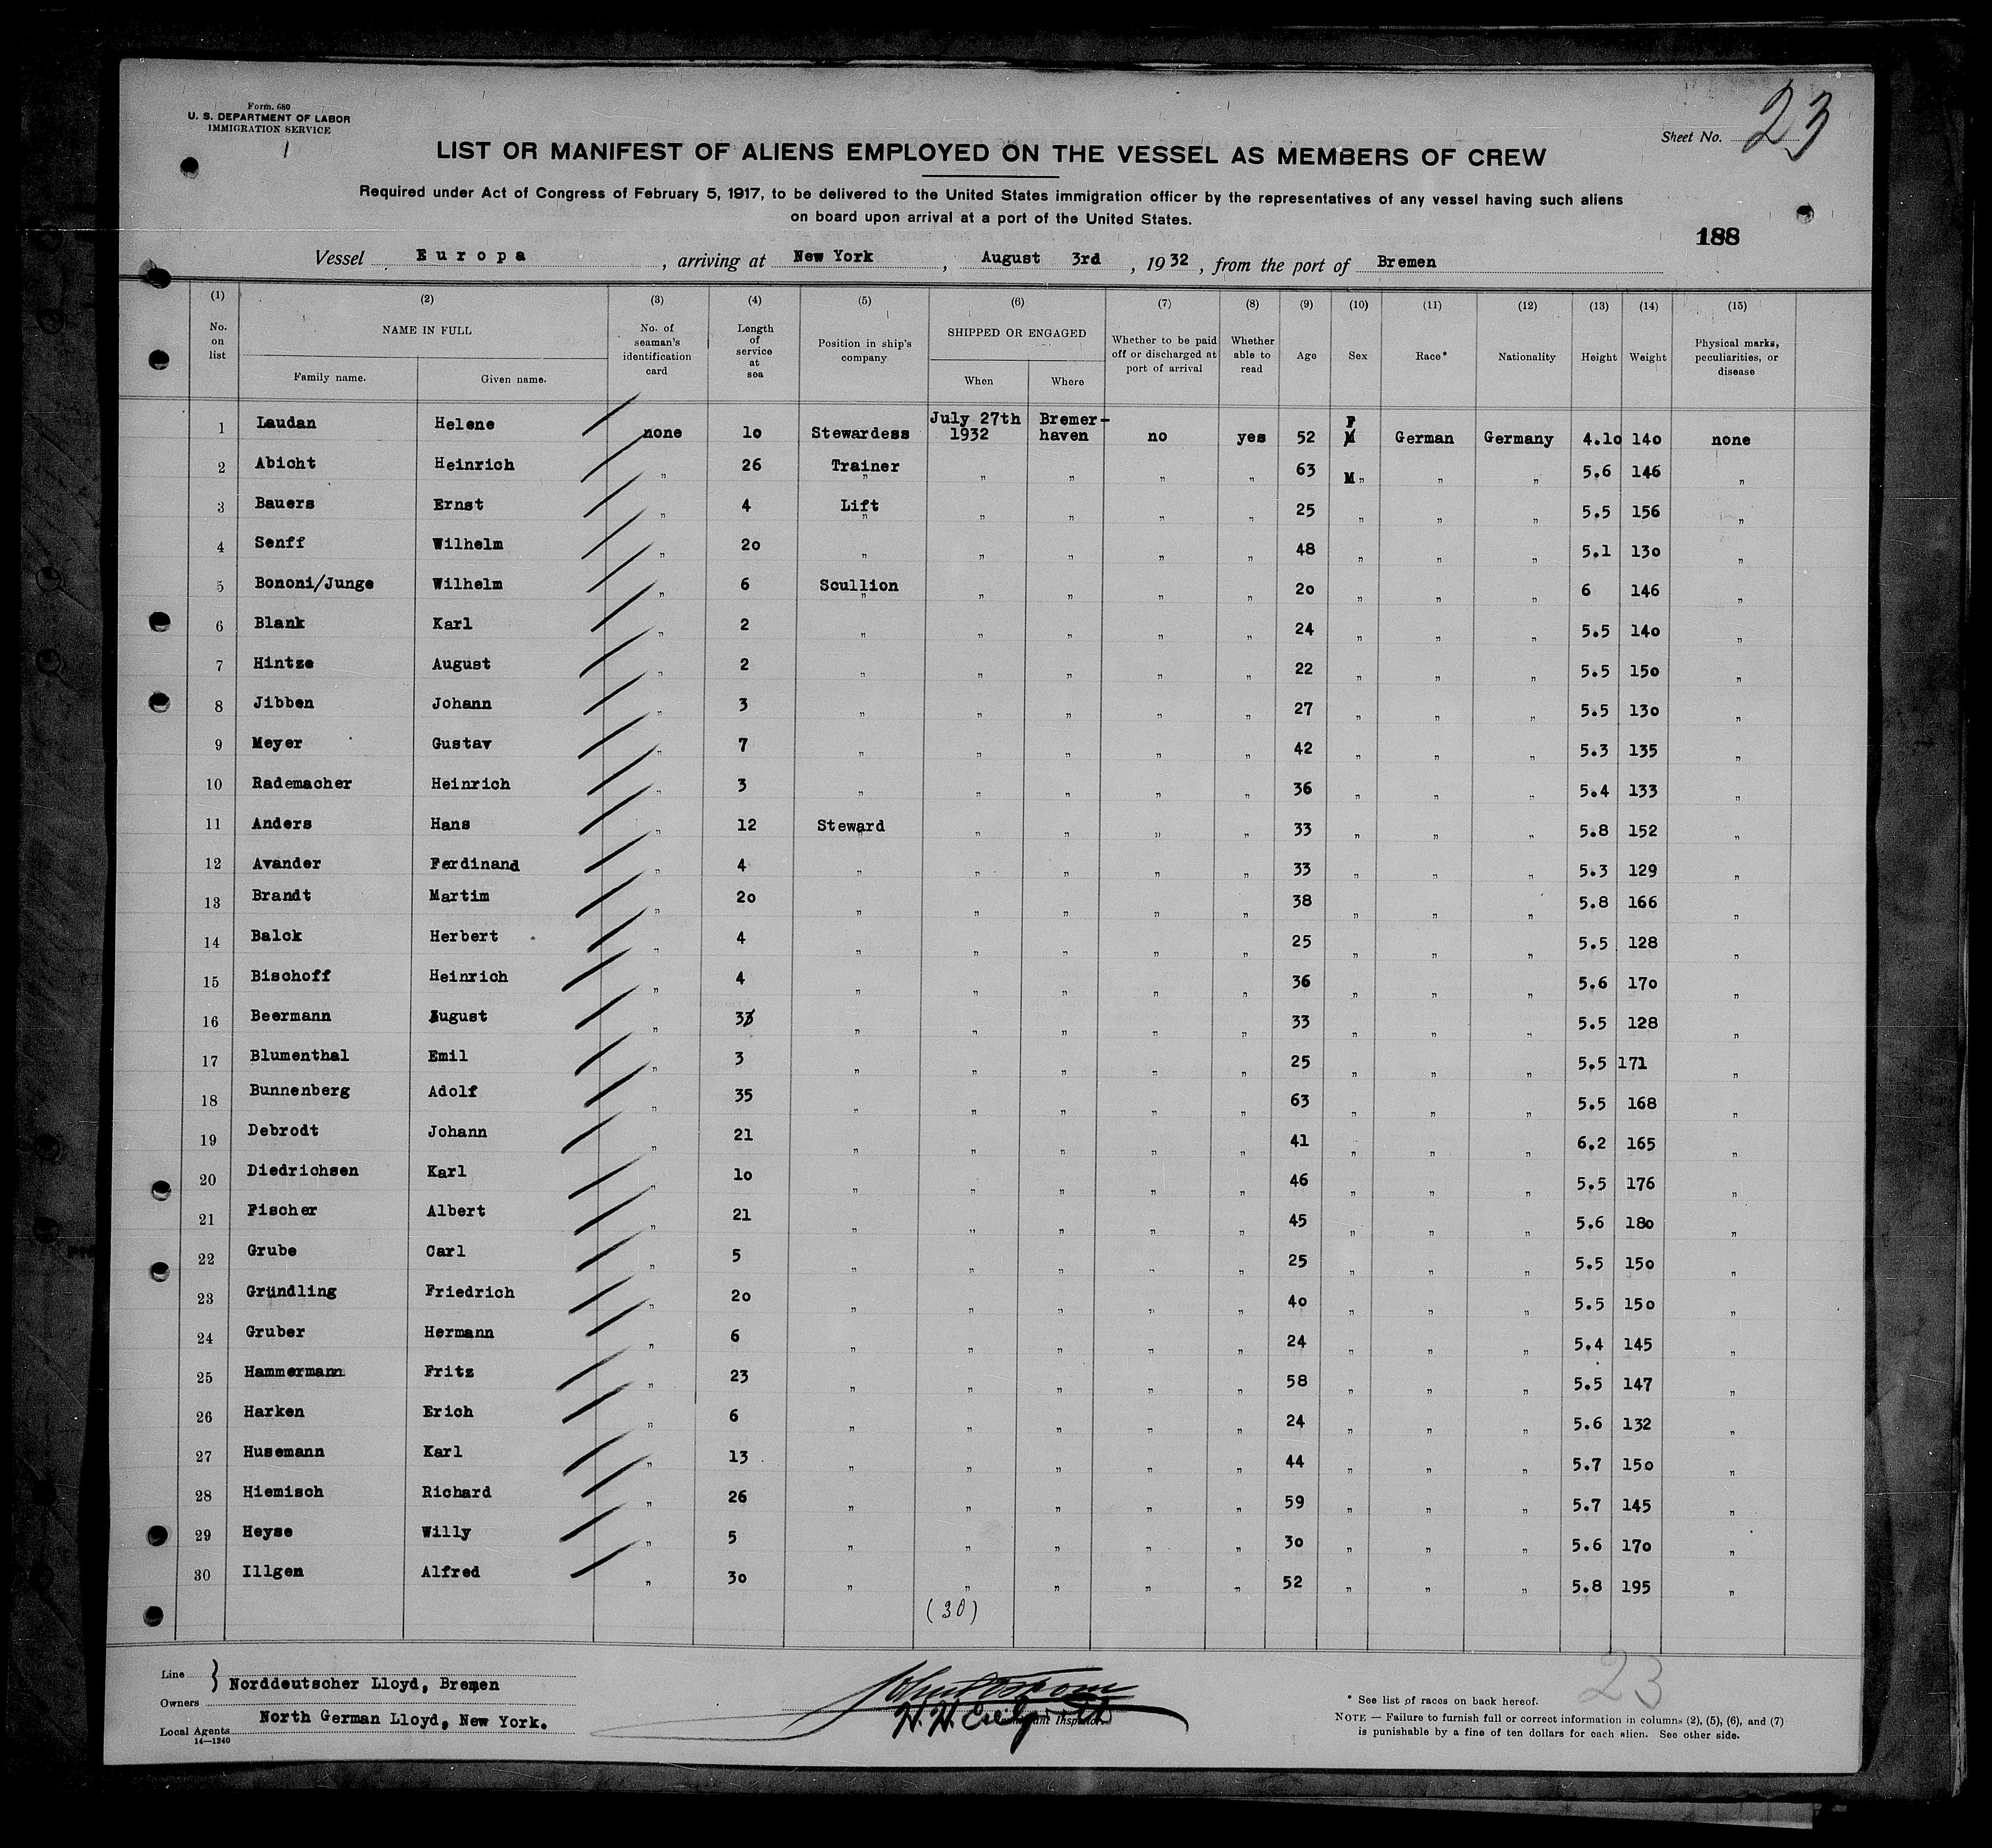 Form. 680
U. S. DEPARTMENT OF LABOR
IMMIGRATION SERVICE
1
Sheet No. 23
LIST OR MANIFEST OF ALIENS EMPLOYED ON THE VESSEL AS MEMBERS OF CREW
Required under Act of Congress of February 5, 1917, to be delivered to the United States immigration officer by the representatives of any vessel having such aliens
on board upon arrival at a port of the United States.
188
Vessel Europa , arriving at New York , August 3rd , 1932 , from the port of Bremen
(1) (2) (3) (4) (5) (6) (7) (8) (9) (10) (11) (12) (13) (14) (15)
No. on list NAME IN FULL Family name. Given name. No. of seaman's identification card Length of service at sea Position in ship's company SHIPPED OR ENGAGED When Where Whether to be paid off or discharged at port of arrival Whether able to read Age Sex Race* Nationality Height Weight Physical marks, peculiarities, or disease
1 Laudan Helene none 10 Stewardess July 27th 1932 Bremer-haven no yes 52 F M German Germany 4.10 140 none
2 Abicht Heinrich „ 26 Trainer „ „ „ „ 63 M„ „ „ 5.6 146 „
3 Bauers Ernst „ 4 Lift „ „ „ „ 25 „ „ „ 5.5 156 „
4 Senff Wilhelm „ 20 „ „ „ „ „ 48 „ „ „ 5.1 130 „
5 Bononi/Junge Wilhelm „ 6 Scullion „ „ „ „ 20 „ „ „ 6 146 „
6 Blank Karl „ 2 „ „ „ „ „ 24 „ „ „ 5.5 140 „
7 Hintze August „ 2 „ „ „ „ „ 22 „ „ „ 5.5 150 „
8 Jibben Johann „ 3 „ „ „ „ „ 27 „ „ „ 5.5 130 „
9 Meyer Gustav „ 7 „ „ „ „ „ 42 „ „ „ 5.3 135 „
10 Rademacher Heinrich „ 3 „ „ „ „ „ 36 „ „ „ 5.4 133 „
11 Anders Hans „ 12 Steward „ „ „ „ 33 „ „ „ 5.8 152 „
12 Avander Ferdinand „ 4 „ „ „ „ „ 33 „ „ „ 5.3 129 „
13 Brandt Martim „ 20 „ „ „ „ „ 38 „ „ „ 5.8 166 „
14 Balck Herbert „ 4 „ „ „ „ „ 25 „ „ „ 5.5 128 „
15 Bischoff Heinrich „ 4 „ „ „ „ „ 36 „ „ „ 5.6 170 „
16 Beermann August „ 33 „ „ „ „ „ 33 „ „ „ 5.5 128 „
17 Blumenthal Emil „ 3 „ „ „ „ „ 25 „ „ „ 5.5 171 „
18 Bunnenberg Adolf „ 35 „ „ „ „ „ 63 „ „ „ 5.5 168 „
19 Debrodt Johann „ 21 „ „ „ „ „ 41 „ „ „ 6.2 165 „
20 Diedrichsen Karl 10 „ „ „ „ „ 46 „ „ „ 5.5 176 „
21 Fischer Albert „ 21 „ „ „ „ „ 45 „ „ „ 5.6 180 „
22 Grube Carl „ 5 „ „ „ „ „ 25 „ „ „ 5.5 150 „
23 Gründling Friedrich „ 20 „ „ „ „ „ 40 „ „ „ 5.5 150 „
24 Gruber Hermann „ 6 „ „ „ „ „ 24 „ „ „ 5.4 145 „
25 Hammermann Fritz „ 23 „ „ „ „ „ 58 „ „ „ 5.5 147 „
26 Harken Erich „ 6 „ „ „ „ „ 24 „ „ „ 5.6 132 „
27 Husemann Karl „ 13 „ „ „ „ „ 44 „ „ „ 5.7 150 „
28 Hiemisch Richard „ 26 „ „ „ „ „ 59 „ „ „ 5.7 145 „
29 Heyse Willy „ 5 „ „ „ „ „ 30 „ „ „ 5.6 170 „
30 Illgen Alfred „ 30 „ „ „ „ „ 52 „ „ „ 5.8 195 „
(30)
Line } Norddeutscher Lloyd, Bremen
Owners
Local Agents North German Lloyd, New York.
14—1240
Inspector.
23
* See list of races on back hereof.
NOTE — Failure to furnish full or correct information in columns (2), (5), (6), and (7)
is punishable by a fine of ten dollars for each alien. See other side.